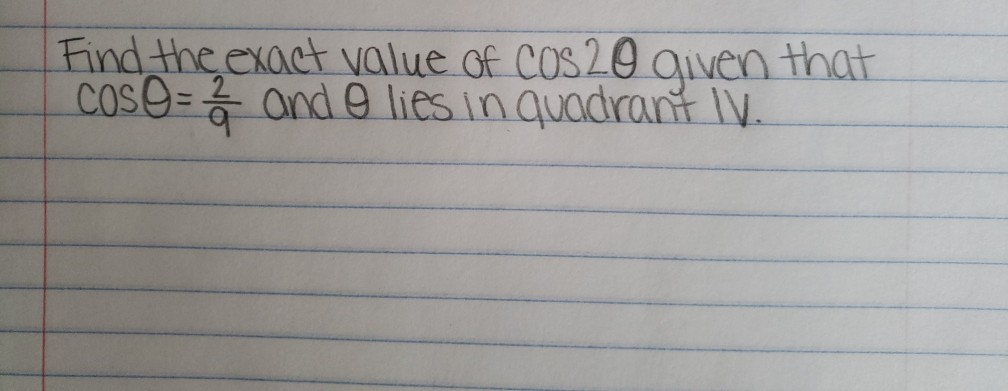 Find the exact value of cos2θ given that
cosθ = 2/9 and θ lies in quadrant IV.